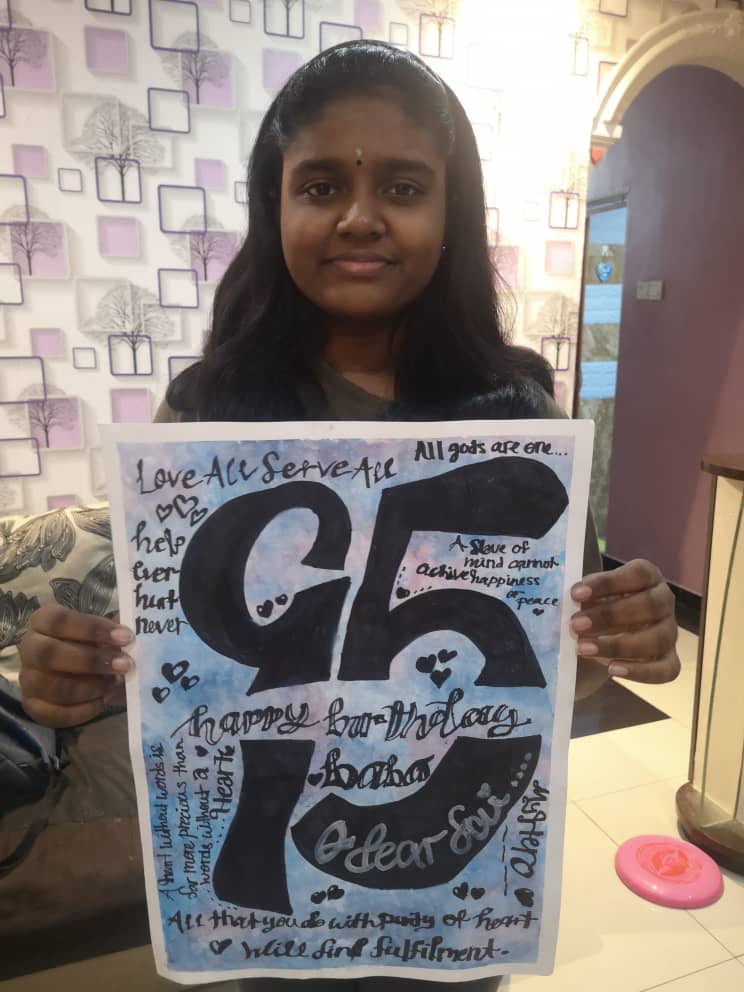 Love All Serve All
All gods are one...
help
ever
hurt
never
95
A slave of
mind cannot
achive happiness
or peace
happy birthday
baba
O dear Sai ....
A heart without words is
for more precious than
words without a
Heart
All that you do with purity of heart
will find fulfilment.